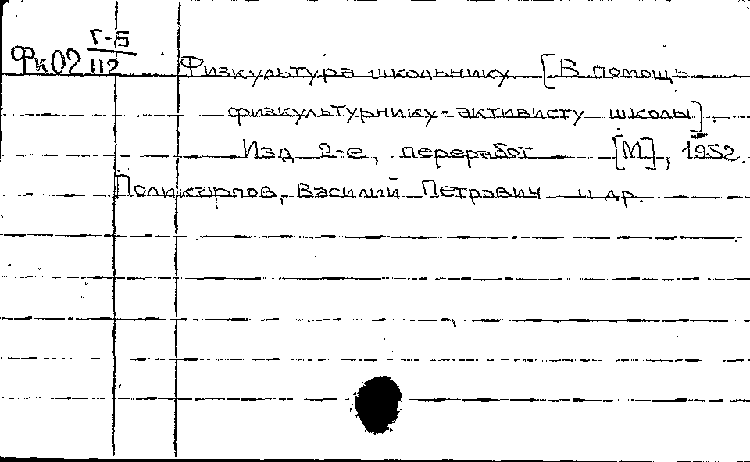 Г-5
Фк02 112
Физкультура школьнику [В помощь
физкультурнику-активисту школы].
Изд 2-е, переработ [М], 1952.
Поликарпов, Василий Петрович и др.